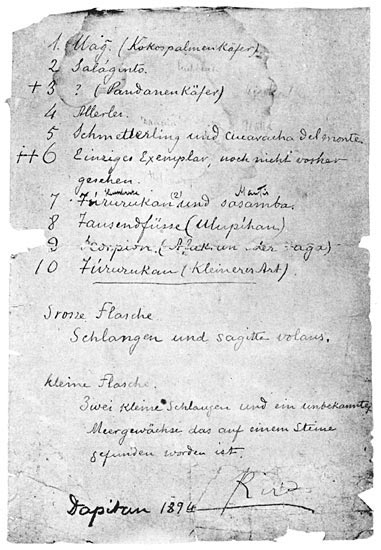 1. Uāg. (Kokospalmenkäfer)
2 Salaginto.
+ 3 ? (Pandanenkäfer)
4 Allerlei
5 Schmetterling und cucaracha del monte
++ 6 Einziges Exemplar, noch nicht vorher
gesehen.
(2) Mantis
7 Fúrurukan und sasamba.
8 Tausendfüsse (Ulupihan)
9 Scorpion.
10 Fúrurukan (Kleinere Art)
Grosse Flasche
Schlangen und sagitta volans.
Kleine Flasche.
Zwei kleine Schlangen und ein unbekanntes
Meergewächse das auf einem Steine
gefunden worden ist.
Dapitan 1894